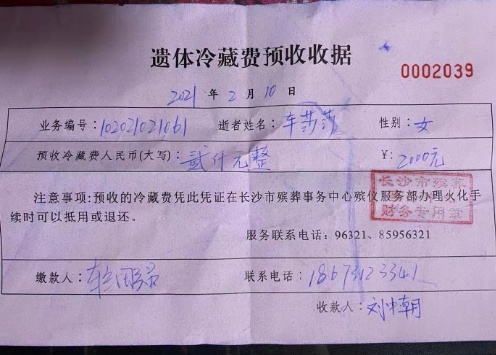 遗体冷藏费预收收据
0002039
2021 年 2 月 10 日
业务编号: 1020210210b1 逝者姓名: 车莎莎 性别: 女
预收冷藏费人民币(大写): 贰仟元整 ¥: 2000元
注意事项:预收的冷藏费凭此凭证在长沙市殡葬事务中心殡仪服务部办理火化手
续时可以抵用或退还。
长沙市殡
财务专用章
服务联系电话: 96321、85956321
缴款人: 联系电话: 18673123341
收款人: 刘中朝